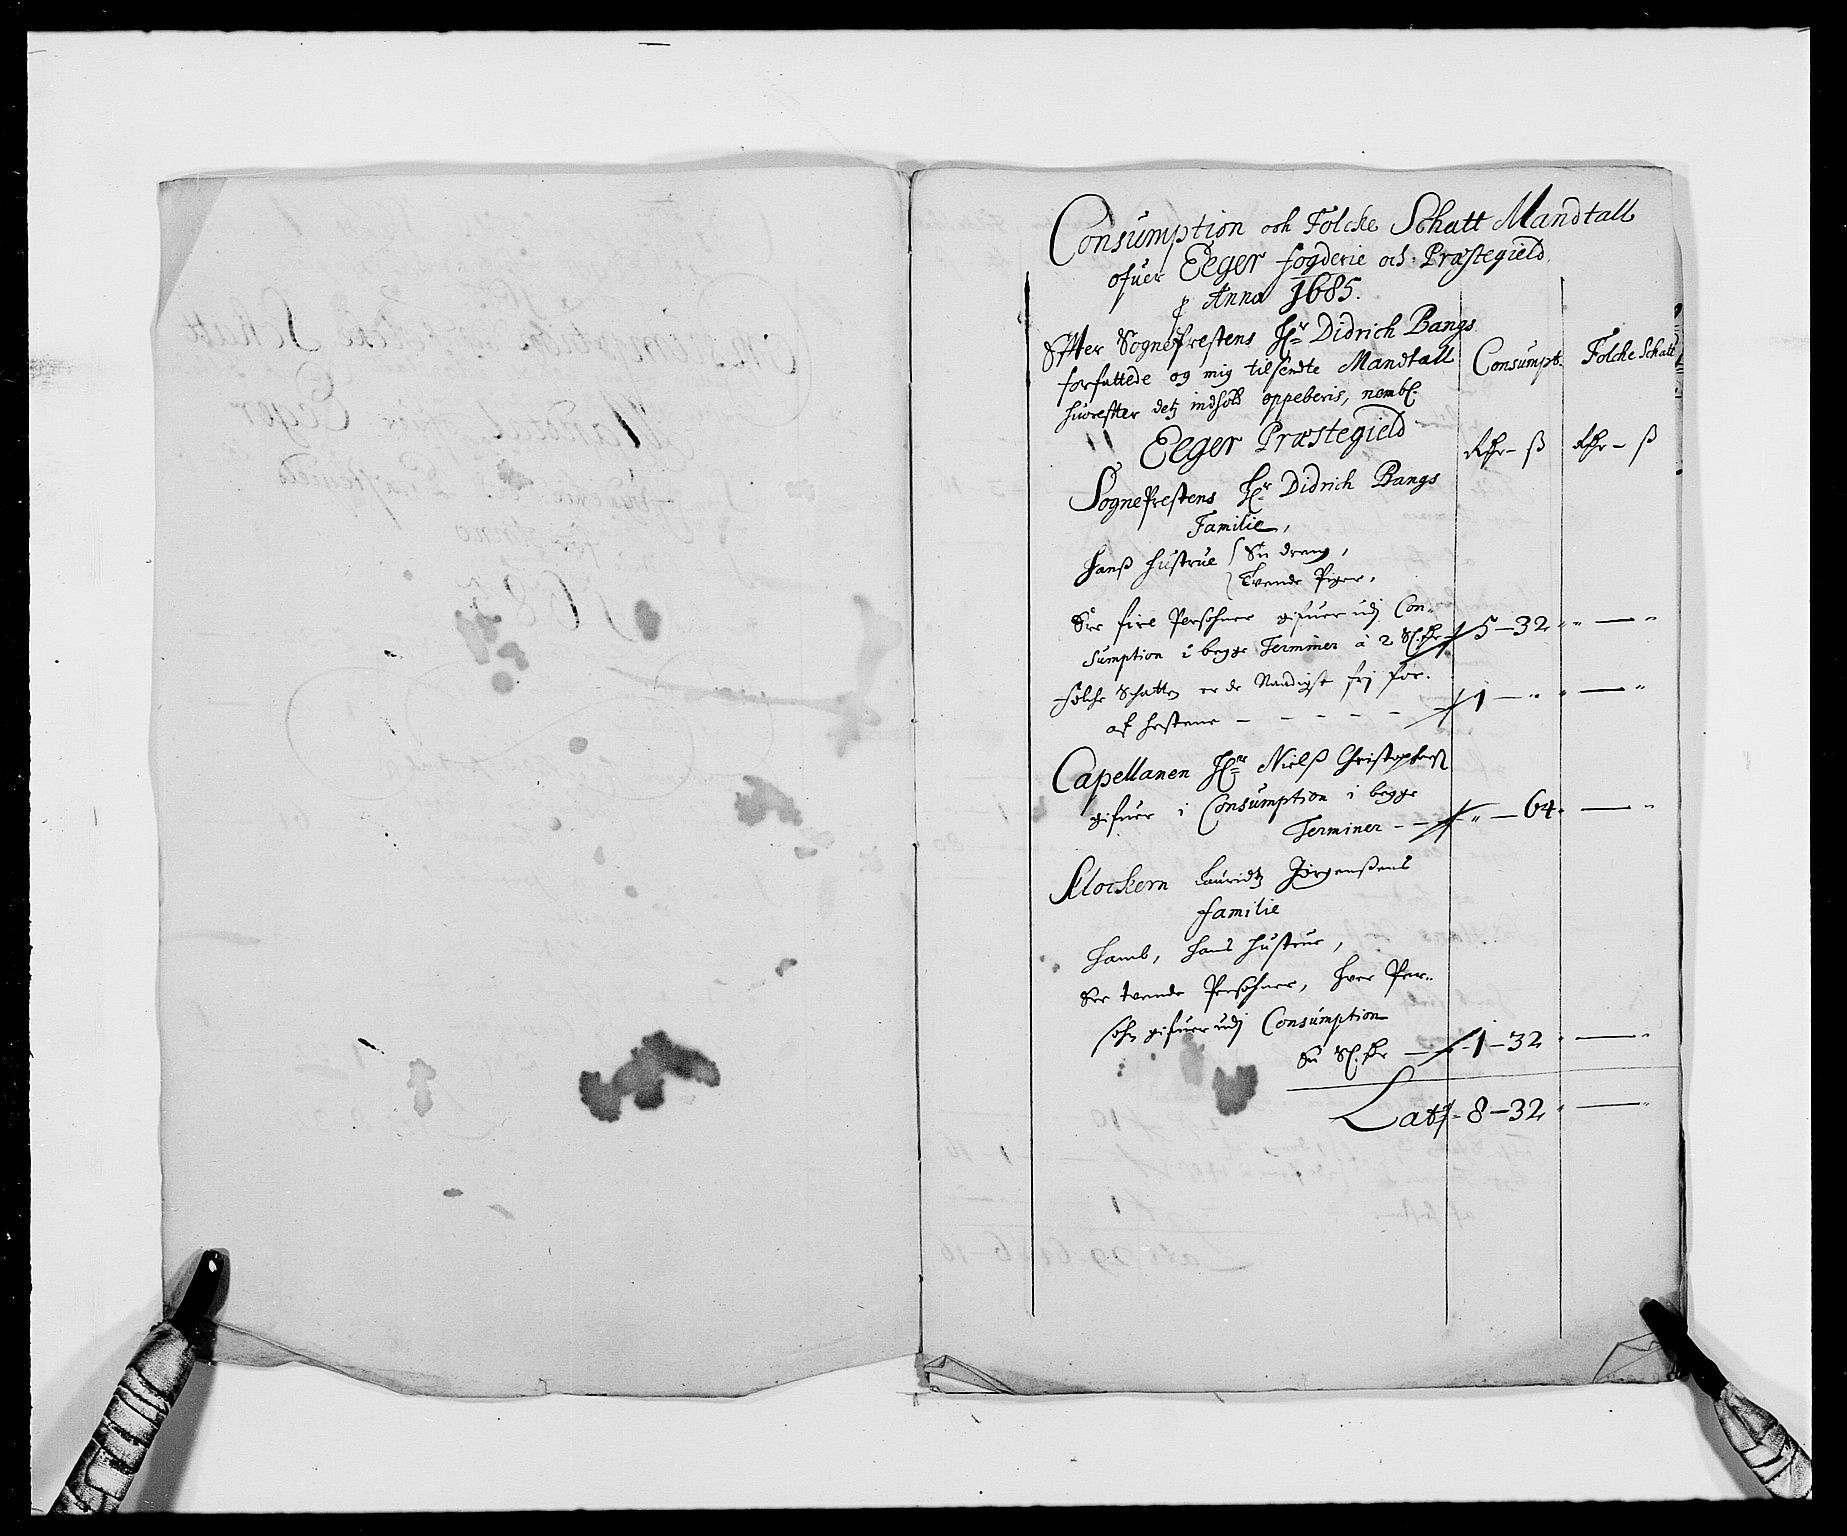 Consumption och Folcke Schatt Mandtall
ofuer Eeger fogderie och Præstegield
Anno 1685.
Efter Sogneprestens Hr Didrich Bangs
forfattede og mig tilsendte Mandtall
huorefter detz indhold oppeberis, nembl.
Consumpt. Folche Schatt
Eeger Præstegield
Rdr – ß Rdr – ß
Sogneprestens Hr Didrich Bangs
Familie,
Hanß Hustrue En dreng,
Tvende Piger,
Ere fire Persohner gifuer udj Con-
sumption i begge Terminer à 2 Sl. dr 5 – 32 " — "
folche Schatten er de Naadigst frj for.
af hestene – – – – – 1 – " " — "
Capellanen Hr Nielß Christophers
gifuer i Consumption i begge
Terminer – – " – 64 " — "
Klockern Lauridtz Jørgenßens
familie
Hamb, hans hustrue,
Ere tvende Persohner, hver Per-
sohn gifuer udj Consumption
En Sl. dr – 1 – 32 " — "
Lats – 8 – 32 " — "